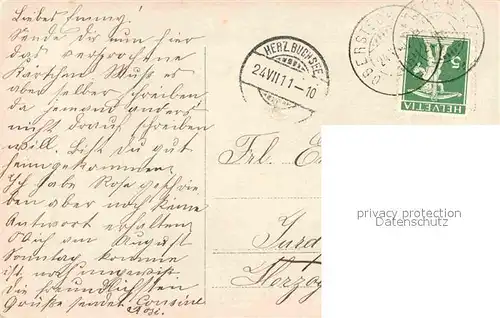 Liebes Emmy!
Sende dir nun hier
das versprochene
Kärtchen. Muss es
aber selber schreiben
da jemand anders
nicht drauf schreiben
will. Bist du gut
heimgekommen.
Ich habe Rosa geschrie
ben aber noch keine
Antwort erhalten
Ob ich am August
Sonntag komme
ist noch ungewiss.
Die freundlichsten
Grüsse sendet Cousine
Rosi.
HERZ.BUCHSEE
24.VII.11-10
HELVETIA
5
Frl.
Herzog
privacy protection
Datenschutz